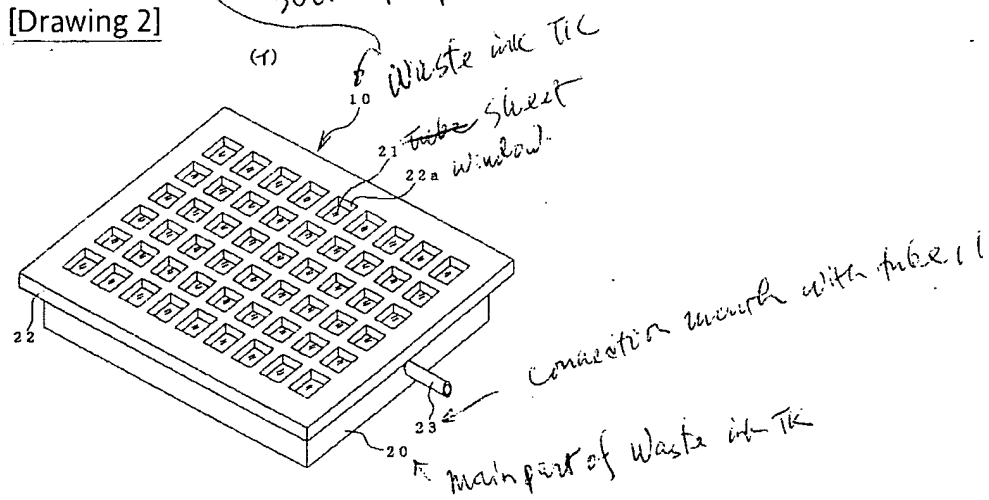 [Drawing 2]
(T)
10 Waste ink TK
21 Tube Sheet
22a window
22
connection mouth with tube,
23
20 main part of Waste ink TK